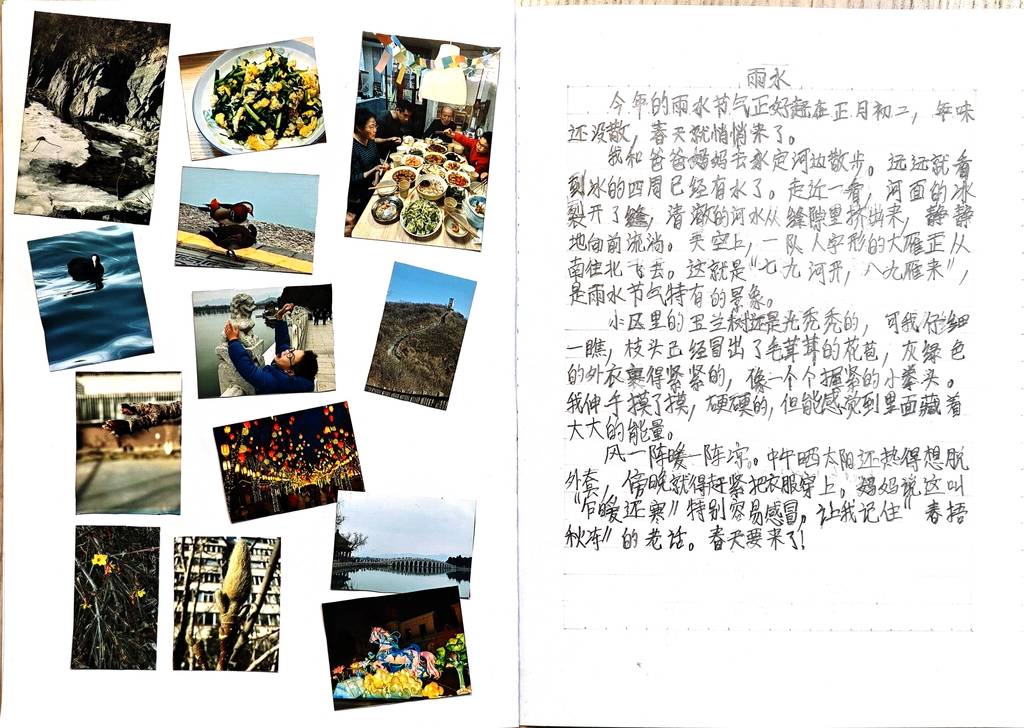 雨水
今年的雨水节气正好赶在正月初二，年味
还没散，春天就悄悄来了。
我和爸爸妈妈去永定河边散步。远远就看
到冰的四周已经有水了。走近一看，河面的冰
裂开了缝，清澈的河水从缝隙里挤出来，静静
地向前流淌。天空上，一队人字形的大雁正从
南往北飞去。这就是“七九河开，八九雁来”，
是雨水节气特有的景象。
小区里的玉兰树还是光秃秃的，可我仔细
一瞧，枝头已经冒出了毛茸茸的花苞，灰绿色
的外衣裹得紧紧的，像一个个握紧的小拳头。
我伸手摸了摸，硬硬的，但能感觉到里面藏着
大大的能量。
风一阵暖一阵凉。中午晒太阳还热得想脱
外套，傍晚就得赶紧把衣服穿上。妈妈说这叫
“乍暖还寒”特别容易感冒。让我记住“春捂
秋冻”的老话。春天要来了！